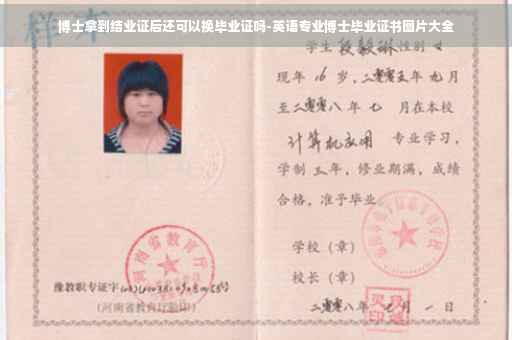 博士拿到结业证后还可以换毕业证吗-英语专业博士毕业证书图片大全
样本
学生 段毅琳 性别 女
现年 16 岁,二零零五年 九月
至二零零八年 七 月在本校
计算机应用 专业学习,
学制 三 年,修业期满,成绩
合格,准予毕业
学校(章)
校长(章)
河南省教育厅
豫教职专证字
(河南省教育厅验印)
二零零八年 七 月 一 日